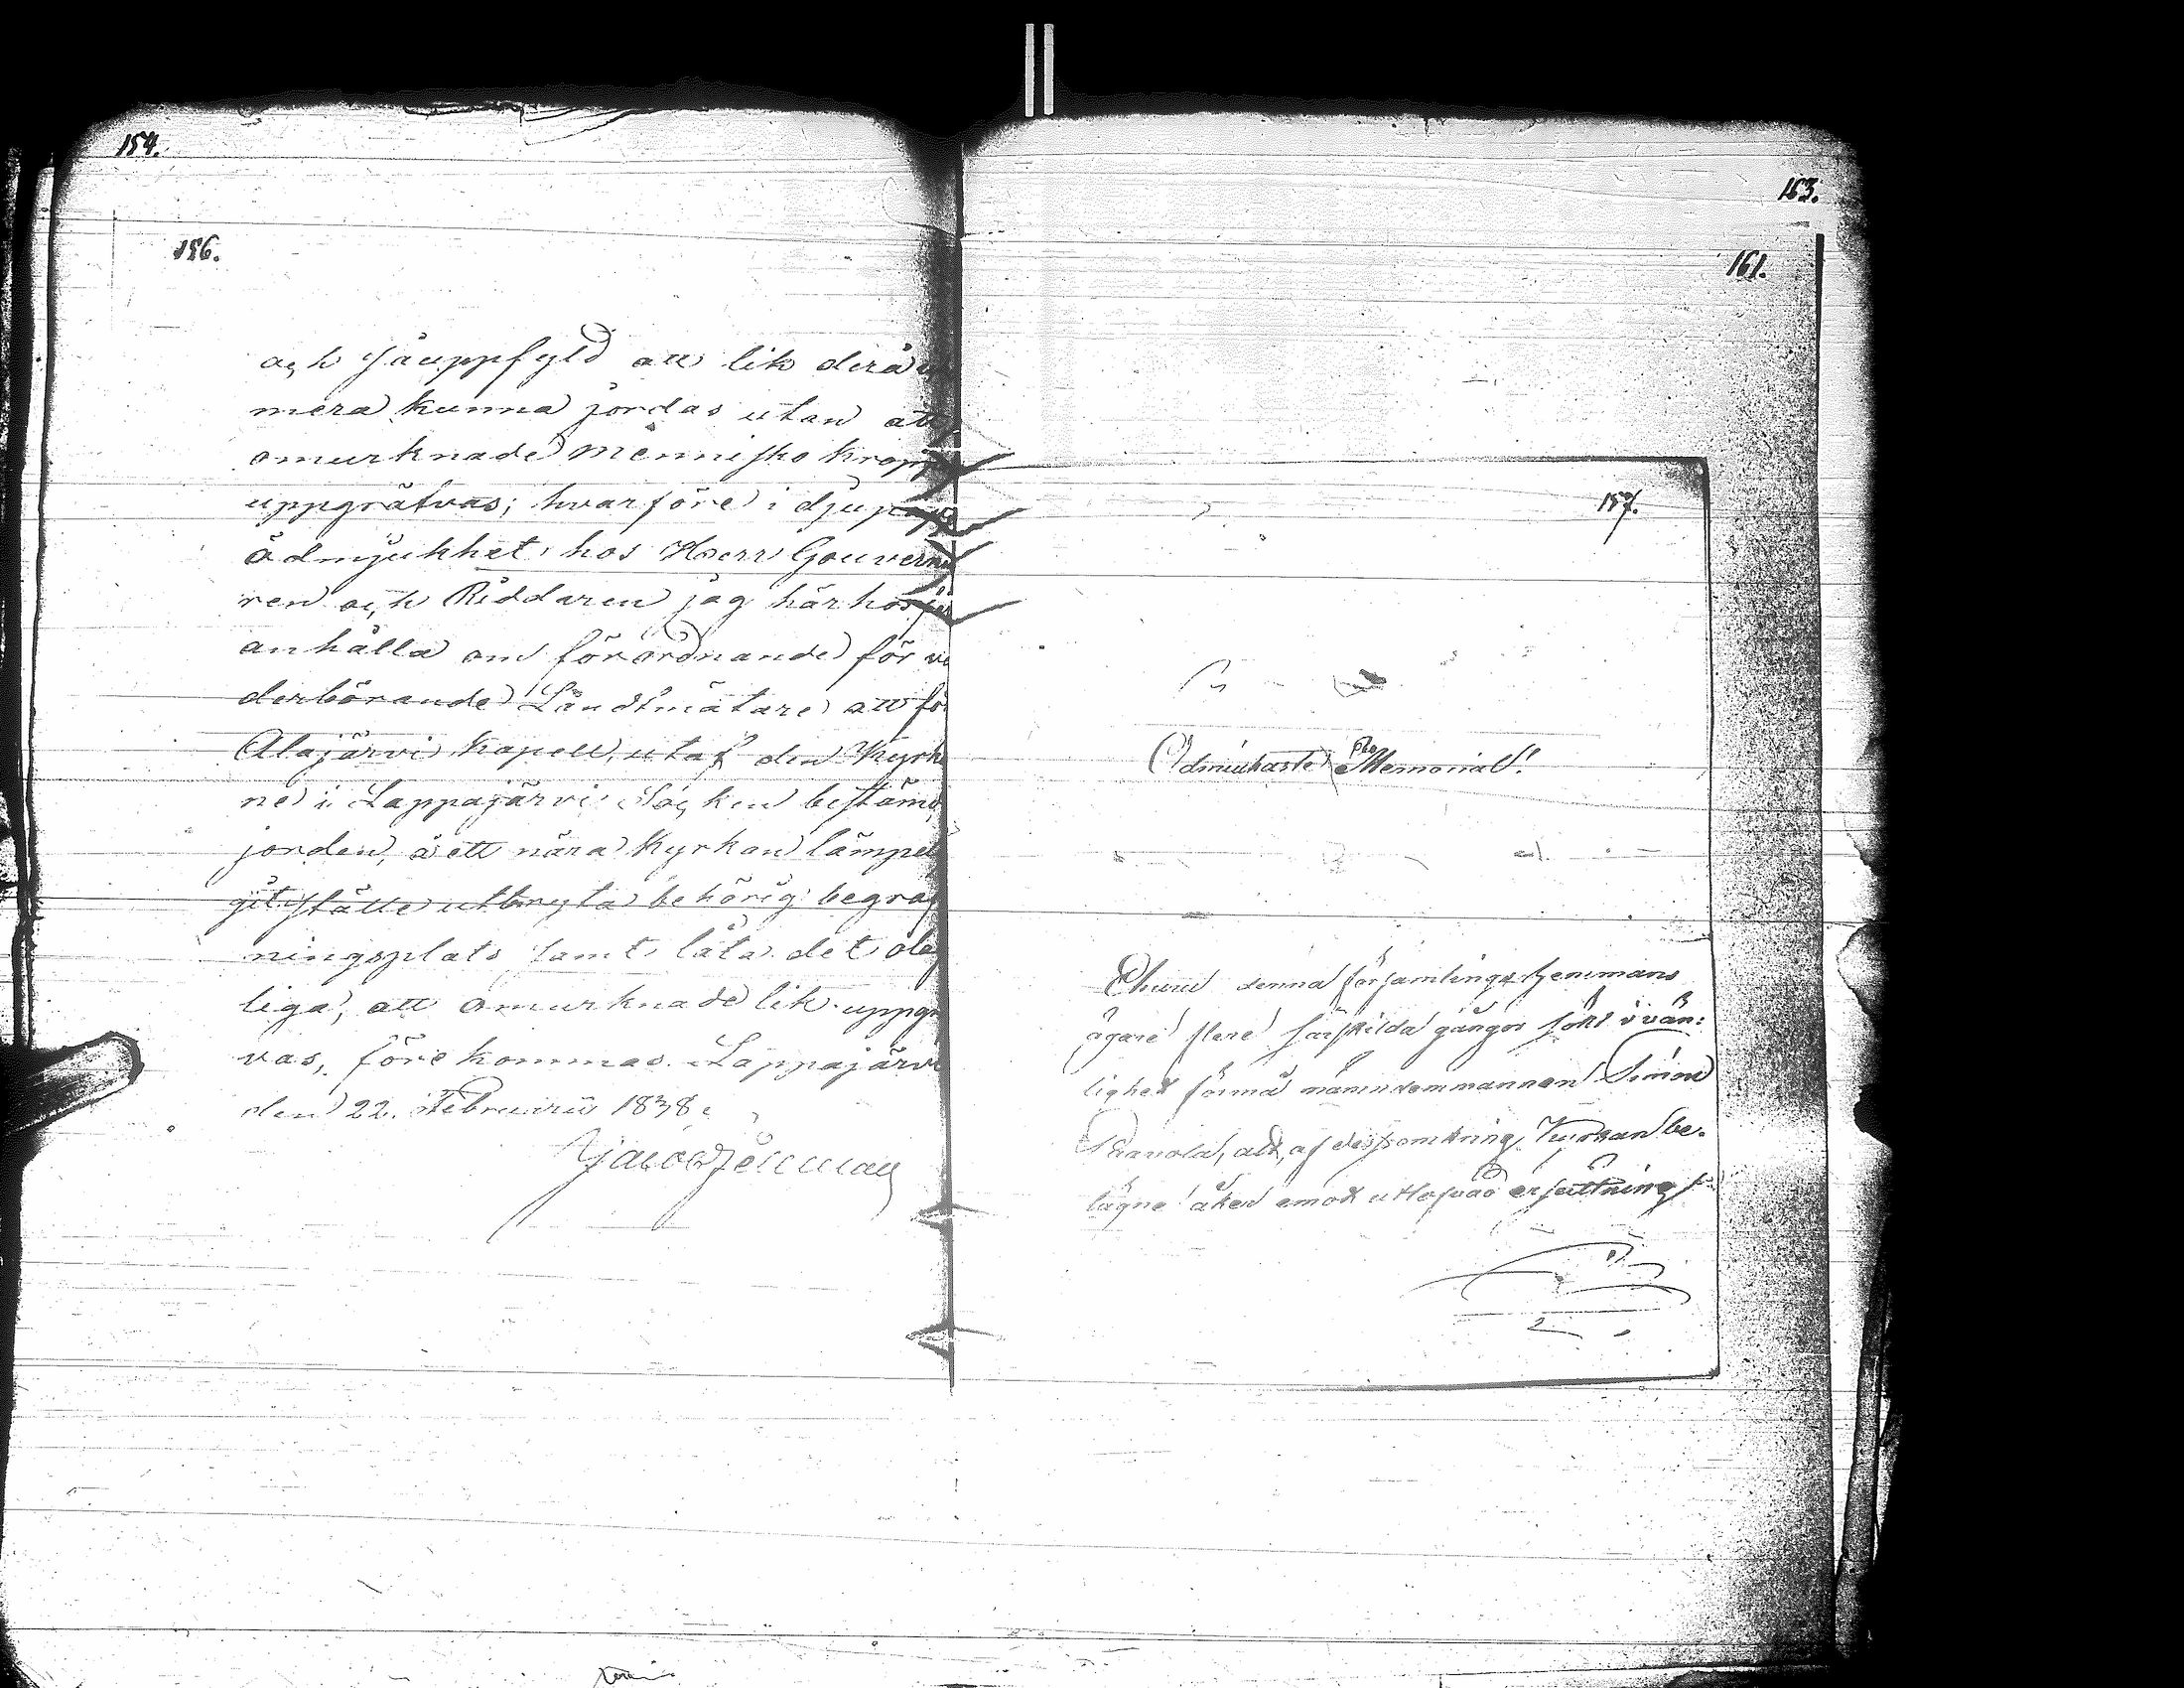 154.
156.
och såuppfyld att lik derå
mera kunna jordas utan att
omurknade mennisko kropp
uppgräfvas; hvarföre i djup
ödmjukhet hos Herr Gouvern
ren och Riddaren jag härhos
anhålla om förordnande för ve
derbörande Landtmätare att fö
Alajärvi kapell, utaf den Kyrk
ne i Lappajärvi Socken bestämd
jorden, å ett nära Kyrkan lämpe
git ställe utbryta behörig begraf
ningsplats samt låta det ola
liga, att omurknade lik uppgr
vas, förekommas. Lappajärvi
den 22. Februarii 1838.
163.
161.
157.
Ödmiukaste Pro Memoria!
Ehuru denna församlings hemmans
ägare flere särskilda gångor sökt i vän:
lighet förmå nämndemannen Simon
Paavola, att, af dess omkring Kyrkan be-
lägne åker emot utlofvad ersättning